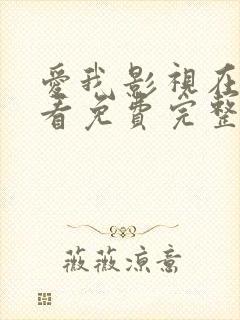 愛我影視在
看免費完整
薇薇凉意